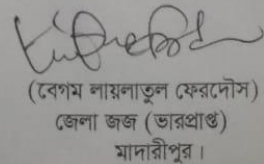 (বেগম লায়লাতুল ফেরদৌস)
জেলা জজ (ভারপ্রাপ্ত)
মাদারীপুর।